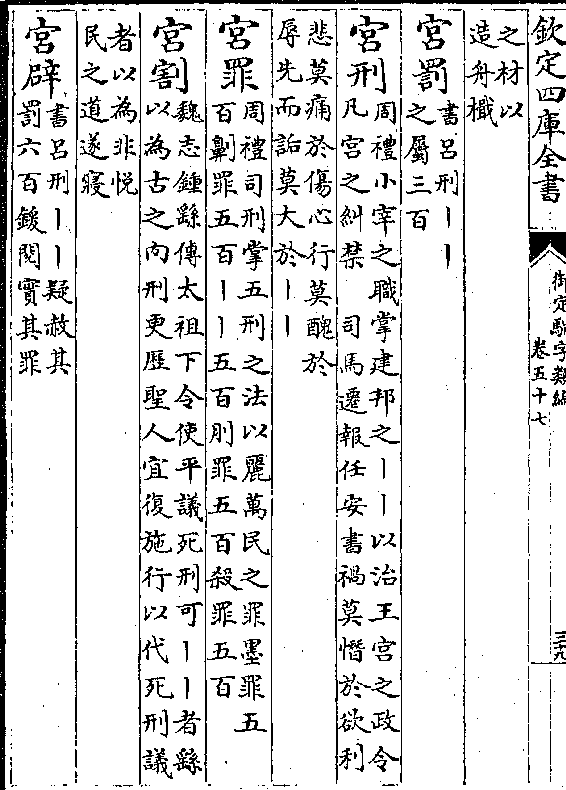 欽定四庫全書
御定駢字類編
卷五十七
三九
之材以
造舟檝
宮罰
書呂刑丨丨
之屬三百
宮刑
周禮小宰之職掌建邦之丨丨以治王宮之政令
凡宮之糾禁　司馬遷報任安書禍莫憯於欲利
悲莫痛於傷心行莫醜於
辱先而詬莫大於丨丨
宮罪
周禮司刑掌五刑之法以麗萬民之罪墨罪五
百劓罪五百丨丨五百刖罪五百殺罪五百
宮割
魏志鍾繇傳太祖下令使平議死刑可丨丨者繇
以為古之肉刑更歷聖人宜復施行以代死刑議
者以為非悅
民之道遂寢
宮辟
書呂刑丨丨疑赦其
罰六百鍰閱實其罪